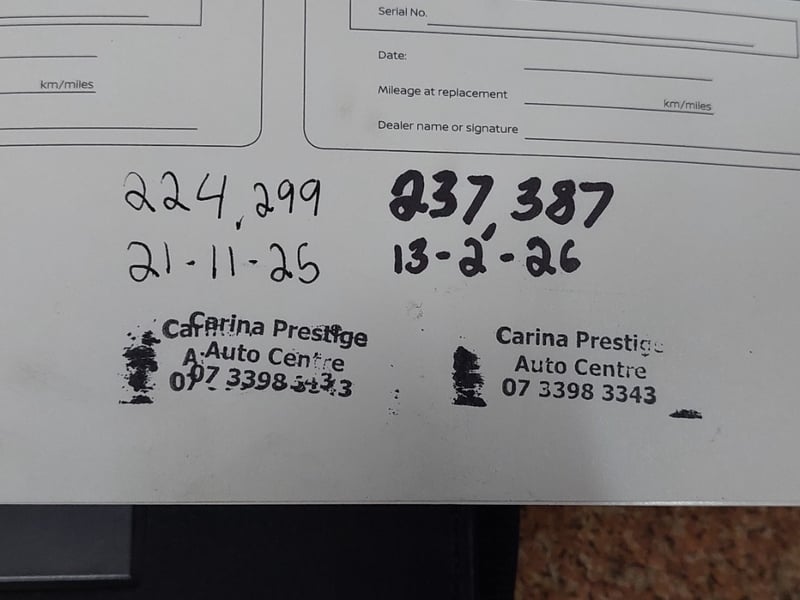 Serial No.
Date:
km/miles
Mileage at replacement
km/miles
Dealer name or signature
224,299
21-11-25
237,387
13-2-26
Carina Prestige
Auto Centre
07 3398 3343
Carina Prestige
Auto Centre
07 3398 3343